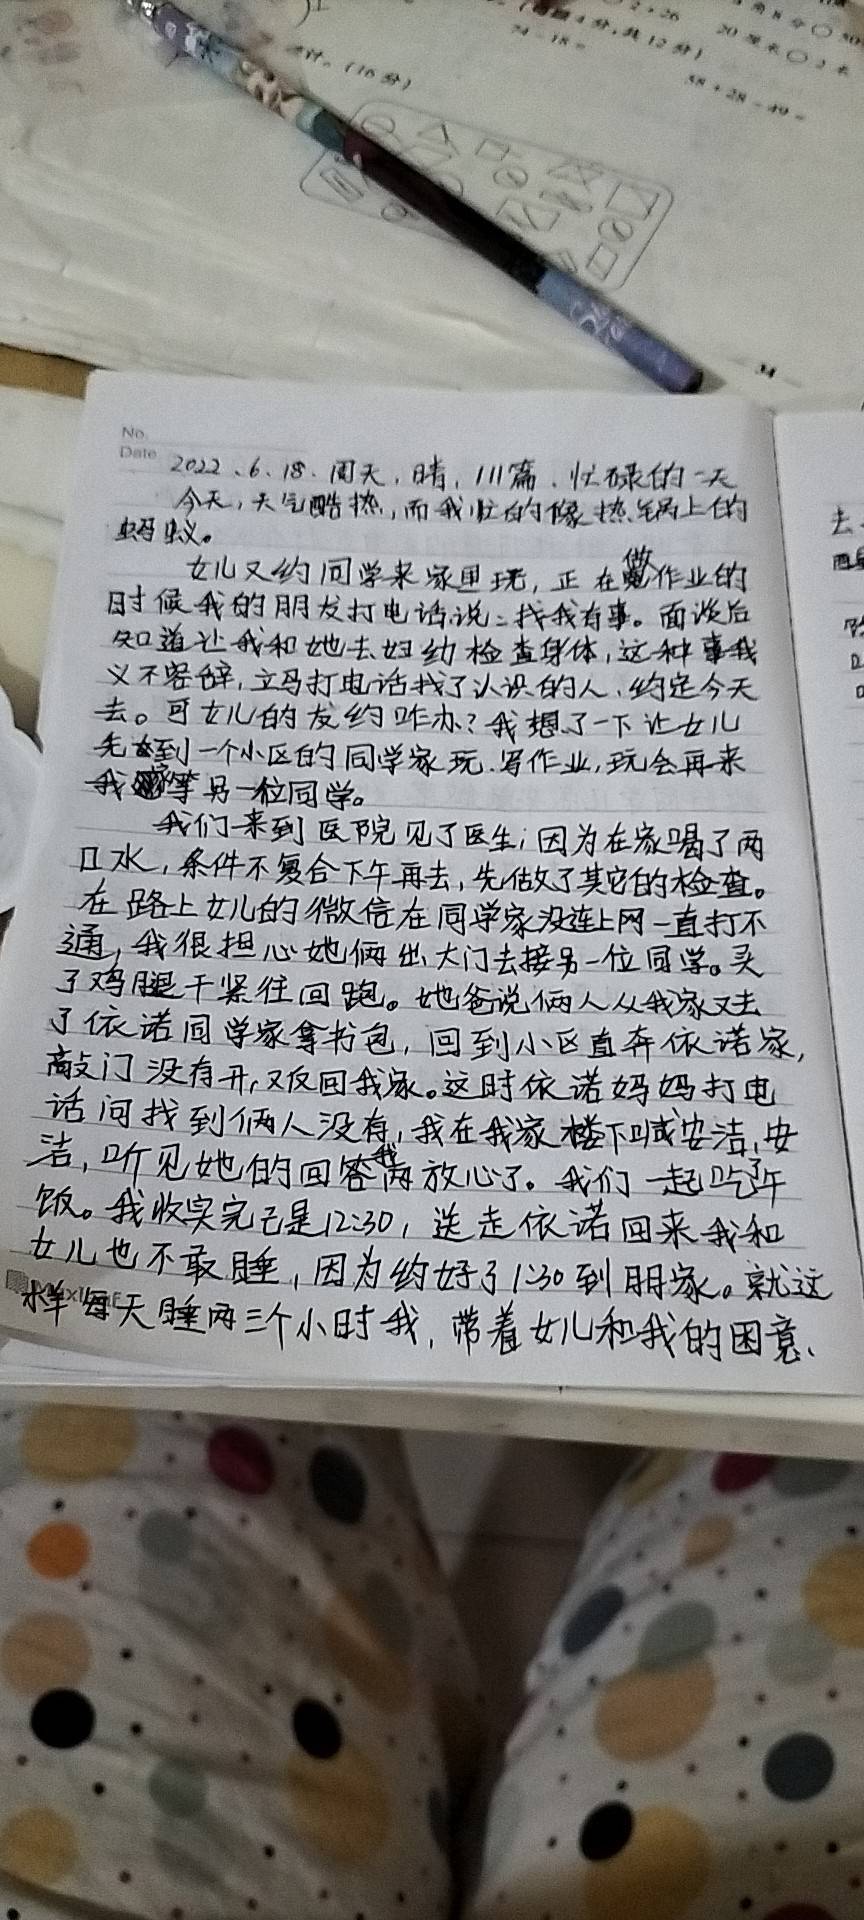 2+26
(每题4分,共12分)
74-18=
20厘米○2米
58+28-49=
计。(16分)
34
No.
Date
2022、6、18.周天,晴,111篇、忙碌的一天
今天,天气酷热,而我忙的像热锅上的
蚂蚁。
女儿又约同学来家里玩,正在做作业的
时候我的朋友打电话说:找我有事。面谈后
知道让我和她去妇幼检查身体,这种事我
义不容辞,立马打电话找了认识的人、约定今天
去。可女儿的友约咋办?我想了一下让女儿
先到一个小区的同学家玩、写作业,玩会再来
我家等另一位同学。
我们一来到医院见了医生;因为在家喝了两
口水,条件不复合下午再去,先做了其它的检查。
在路上女儿的微信在同学家没连上网一直打不
通,我很担心她俩出大门去接另一位同学。买
了鸡腿干紧往回跑。她爸说俩人从我家又去
了依诺同学家拿书包,回到小区直奔依诺家,
敲门没有开,又反回我家。这时依诺妈妈打电
话问找到俩人没有,我在我家楼下喊安洁,安
洁,听见她的回答我两放心了。我们一起吃了午
饭。我收实完已是12:30,送走依诺回来我和
女儿也不敢睡,因为约好了1:30到朋家。就这
样每天睡两三个小时我,带着女儿和我的困意、
去